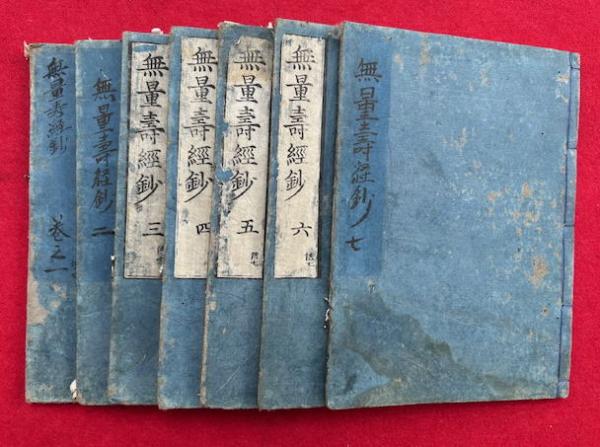 無量寿経鈔 巻之一
無量壽経鈔 二
無量壽經鈔 三
無量壽經鈔 四
無量壽經鈔 五
無量壽經鈔 六
無量壽経鈔 七